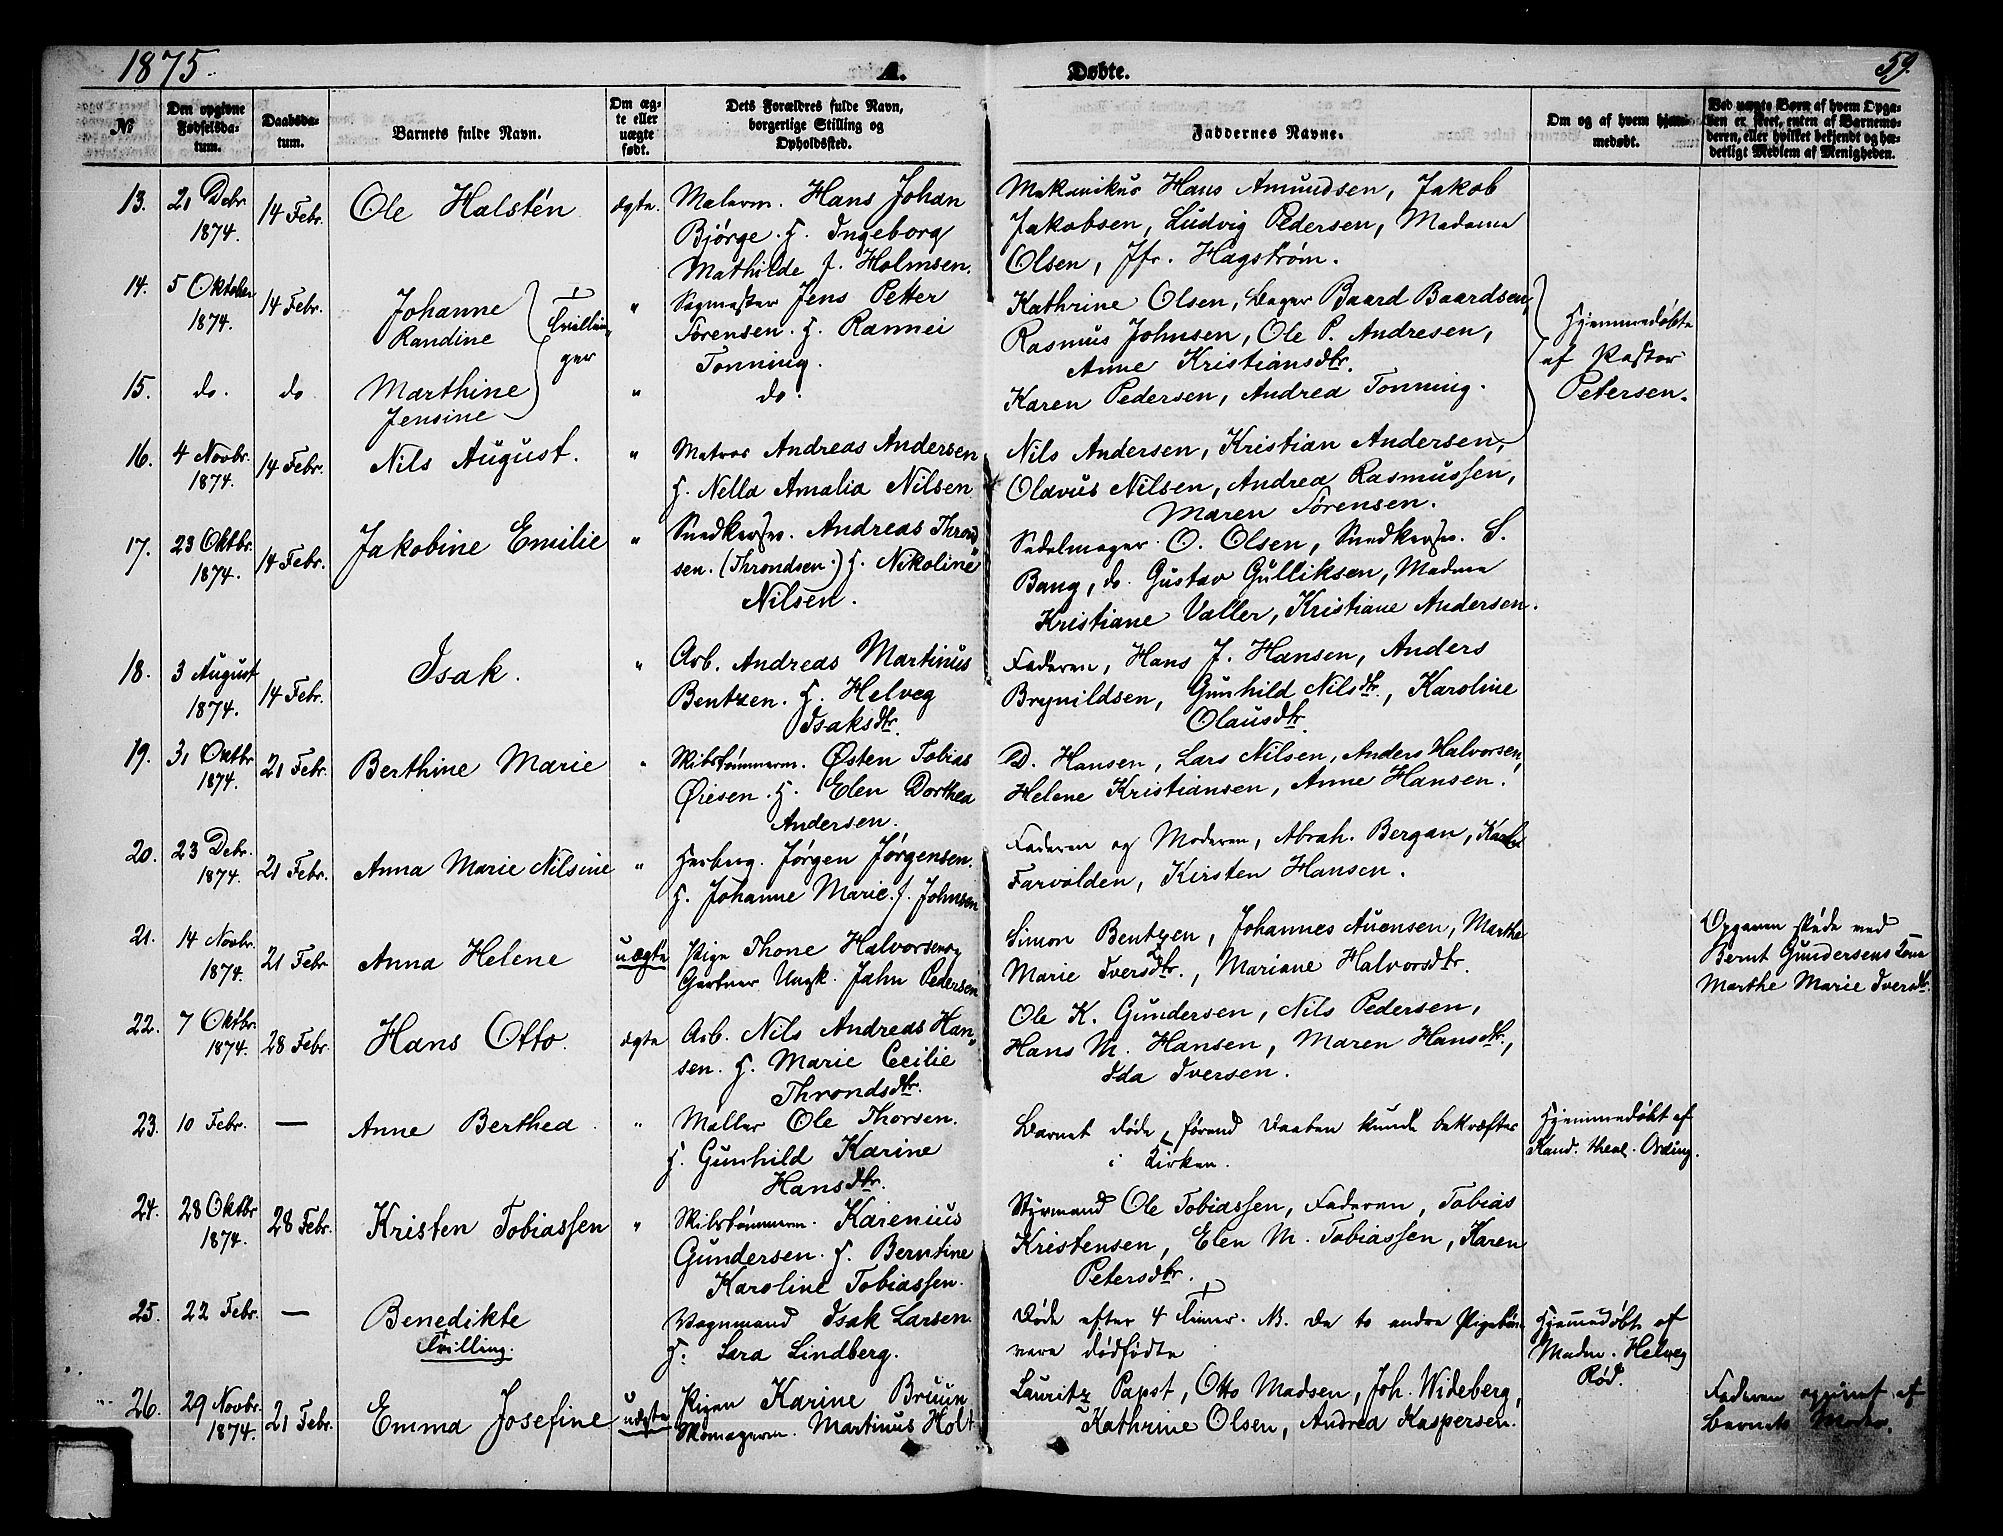 1875. A. Døbte. 59.
№
Den opgivne Fødselsda-tum.
Daabsda-tum.
Barnets fulde Navn.
Om æg-te eller uægte født.
Dets Forældres fulde Navn, borgerlige Stilling og Opholdssted.
Faddernes Navne.
Om og af hvem hjem-medøbt.
Ved uægte Børn af hvem Opga-ven er skeet, enten af Barnemo-deren, eller hvilket bekjendt og hæ-derligt Medlem af Menigheden.
13. 21 Debr. 1874. 14 Febr. Ole Halstén ægte. Malerm. Hans Johan Mekanikus Hans Amundsen, Jakob
Bjørge. H. Ingeborg Jakobsen, Ludvig Pedersen, Madame
Mathilde f. Holmsen. Olsen, Jfr. Hagstrøm.
14. 5 Oktober 1874. 14 Febr. Johanne Tvillin- " Sagmester Jens Petter Kathrine Olsen, Bager Baard Baardsen, Hjemmedøbte
Randine ger Sørensen. H. Rannei Rasmus Johnsen, Ole P. Andresen, af Pastor
Tonning. Anne Kristiansdtr. Petersen.
15. do. do Marthine " do. Karen Pedersen, Andrea Tonning.
Jensine
16. 4 Novbr. 1874. 14 Febr. Nils August. " Matros Andreas Andersen Nils Andersen, Kristian Andersen,
H. Nella Amalia Nilsen Olavus Nilsen, Andrea Rasmussen,
Maren Sørensen.
17. 23 Oktbr. 1874. 14 Febr. Jakobine Emilie " Snedkersv. Andreas Thron- Sadelmager O. Olsen, Snedkersv. S.
sen. (Throndsen.) H. Nikoline Bang, do. Gustav Gulliksen, Madme
Nilsen. Kristiane Valler, Kristiane Andersen.
18. 3 August 1874. 14 Febr. Isak. " Arb. Andreas Martinus Faderen, Hans J. Hansen, Anders
Bentzen. H. Helveg Brynildsen, Gunhild Nilsdtr., Karoline
Isaksdtr. Olausdtr.
19. 31 Oktbr 1874. 21 Febr. Berthine Marie " Skibstømmerm. Østen Tobias D. Hansen, Lars Nilsen, Anders Halvorsen,
Øiesen. H. Elen Dorthea Helene Kristiansen, Anne Hansen.
Andersen.
20. 23 Debr. 1874. 21 Febr. Anna Marie Nilsine " Herberg. Jørgen Jørgensen. Faderen og Moderen, Abrah. Bergan,
H. Johanne Marie f. Johnsen Farvolden, Kirsten Hansen.
21. 14 Novbr. 1874. 21 Febr Anna Helene uægte Pige Thone Halvorsen Simon Bentzen, Johannes Auensen, Marthe Opgaven skede ved
Gartner Ungk. Jahn Pedersen Marie Iversdtr., Mariane Halvorsdtr. Bernt Gundersens Kone
Marthe Marie Iversdtr.
22. 7 Oktbr. 1874. 28 Febr. Hans Otto. ægte Arb. Nils Andreas Han- Ole K. Gundersen, Nils Pedersen,
sen. H. Marie Cecilie Hans M. Hansen, Maren Hansdtr.,
Throndsdtr. Ida Iversen.
23. 10 Febr. — Anne Berthea. " Møller Ole Thorsen. Barnet døde, førend Daaben kunde bekræftes Hjemmedøbt af
H. Gunhild Karine i Kirken. Kand. theol. Ording.
Hansdtr.
24. 28 Oktbr 1874. 28 Febr. Kristen Tobiassen " Skibstømmerm. Karenius Styrmand Ole Tobiassen, Faderen, Tobias
Gundersen. H. Berntine Kristensen, Elen M. Tobiassen, Karen
Karoline Tobiassen. Petersdtr.
25. 22 Febr. — Benedikte Vognmand Isak Larsen. Døde efter 4 Timer. NB. De to andre Pigebørn Hjemmedøbt af
Tvilling. H: Sara Lindberg. vare dødfødte Madm. Helveg
Rød.
26. 29 Novbr. 1874. 21 Febr. Emma Josefine. uægte Pigen Karine Bruun Lauritz Papst, Otto Madsen, Joh. Wideberg, Faderen opgivet af
Skomagerm. Martinus Holt Kathrine Olsen, Andrea Kaspersen. Barnets Moder.